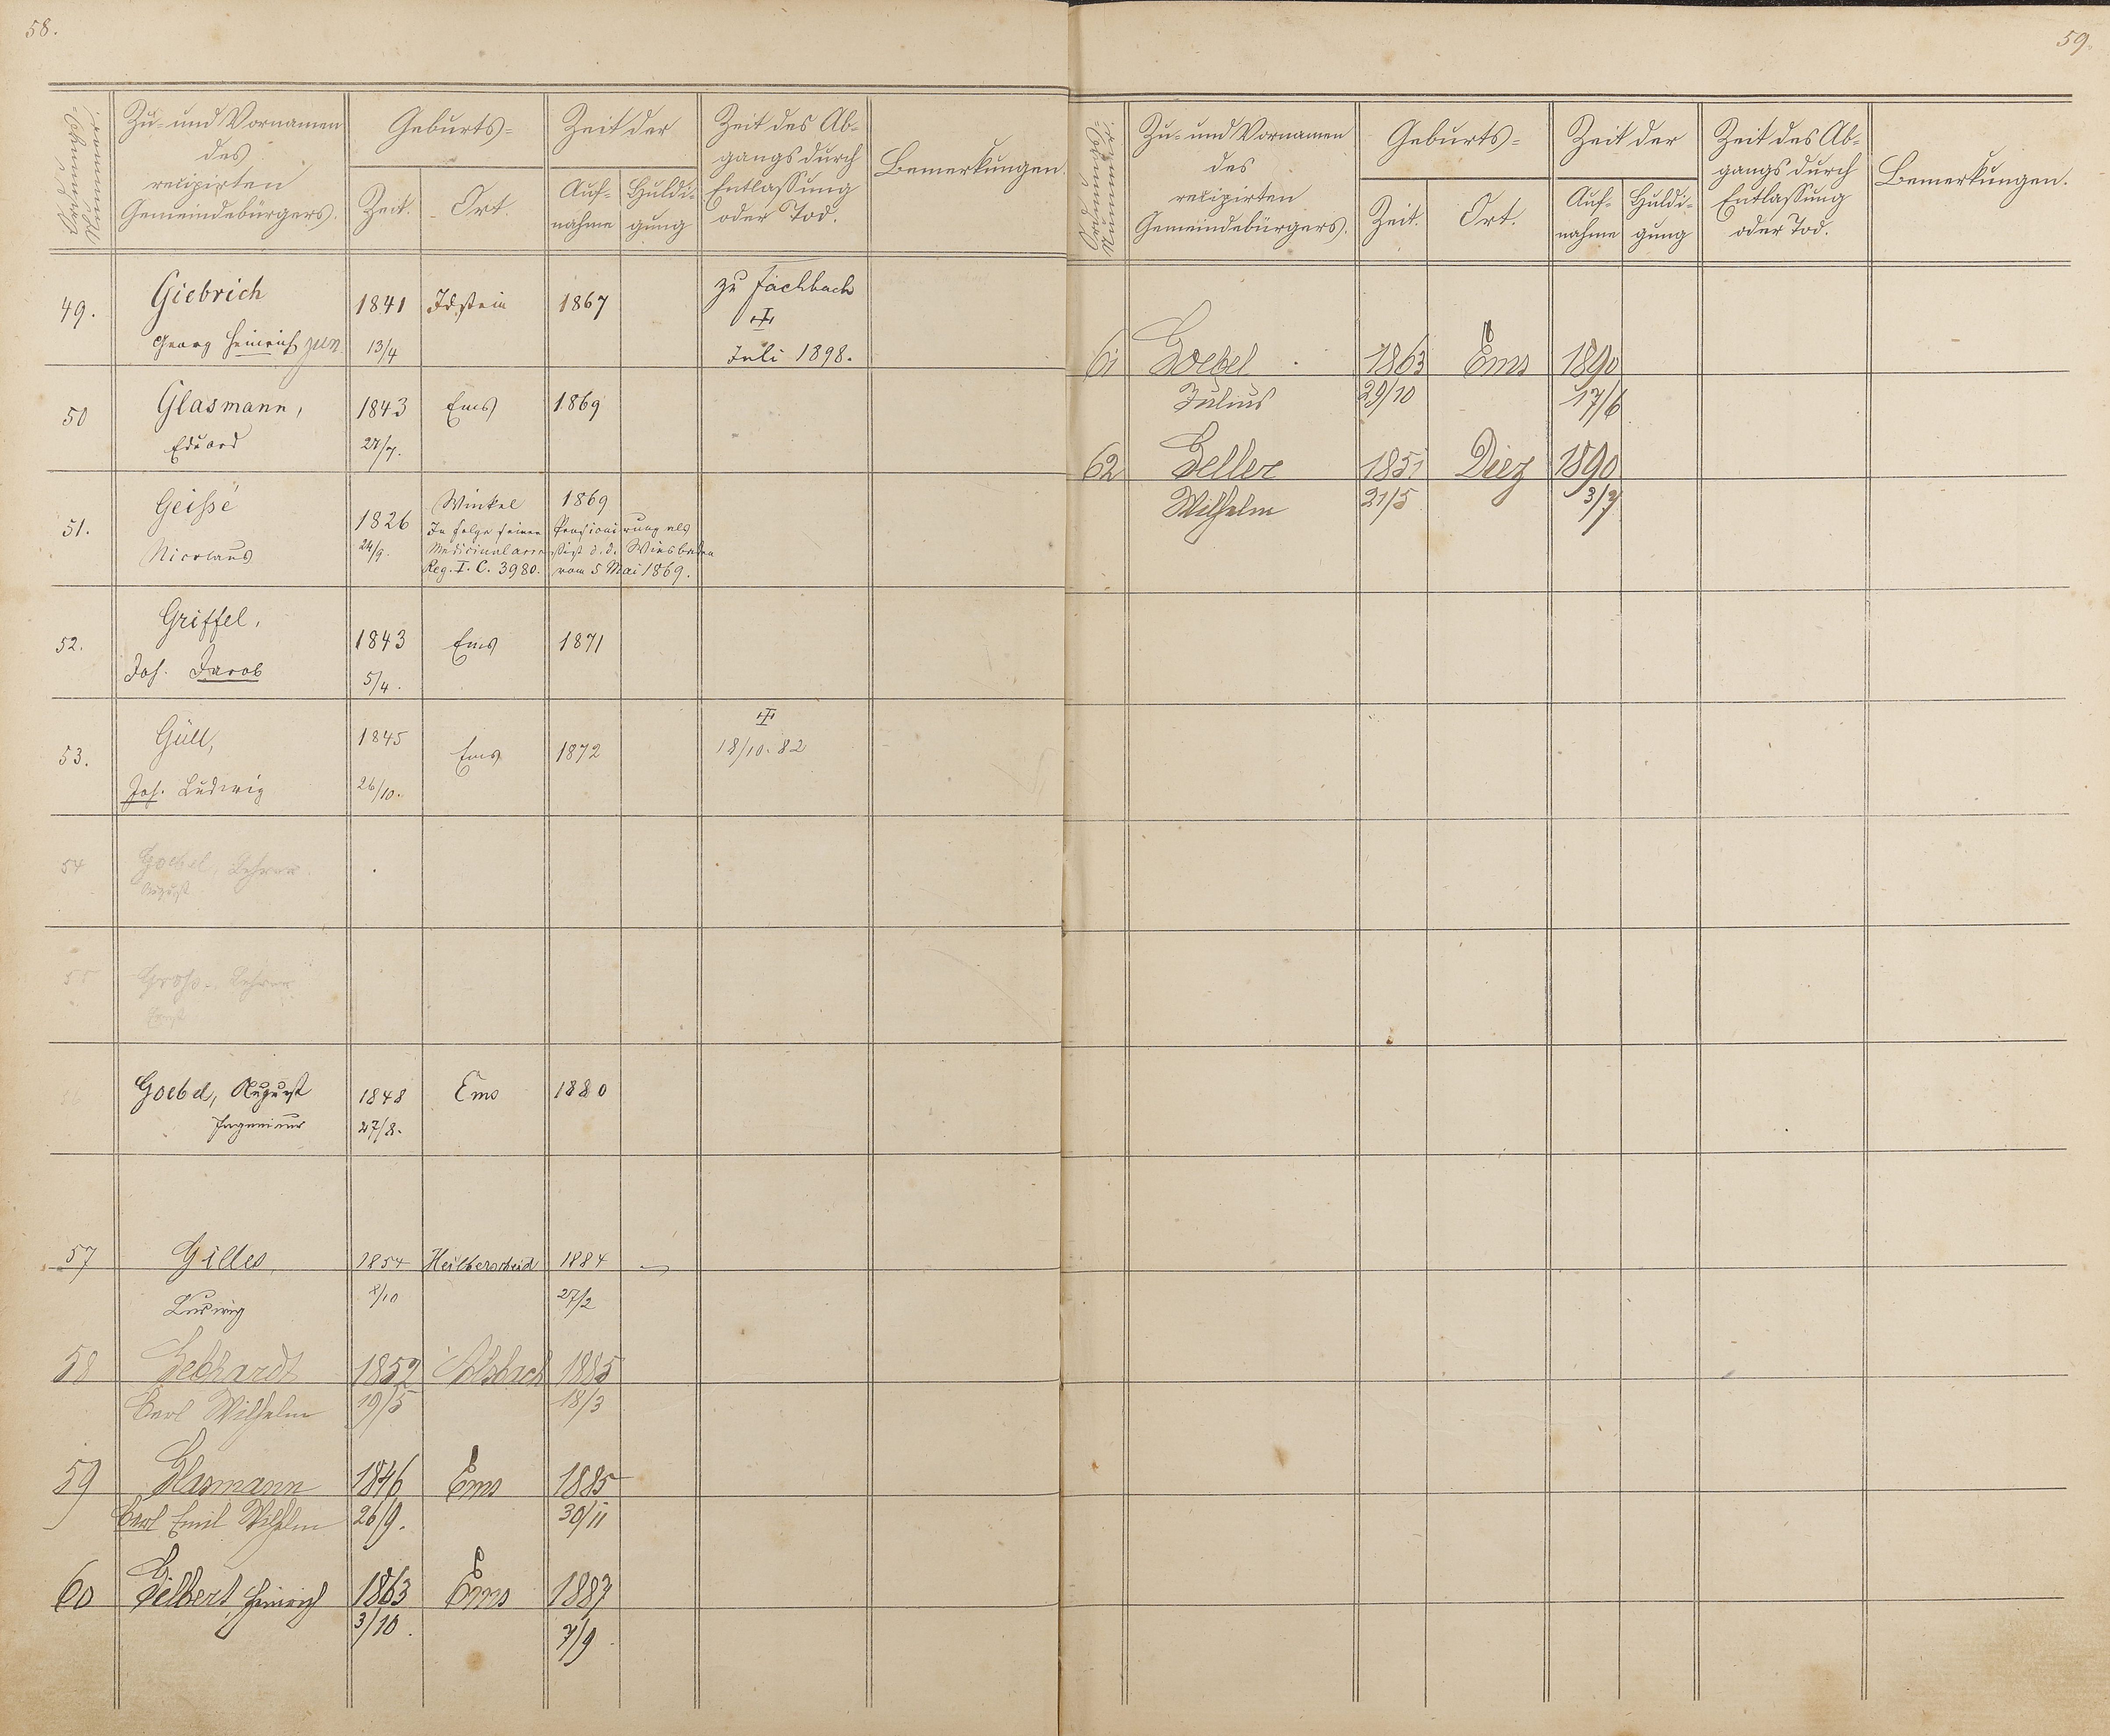 58.
Ordnungs-
Nummer.
Zu- und Vornamen
des
recipirten
Gemeindebürgers.
Geburts-
Zeit.
Ort.
Zeit der
Auf-
nahme
Huldi-
gung
Zeit des Ab-
gangs durch
Entlassung
oder Tod.
Bemerkungen.
49.
Giebrich
Georg Heinrich jun.
1841
13/4
Idstein
1867
zu Fachbach
Juli 1898.
50
Glasmann,
Eduard
1843
27/7.
Ems
1869
51.
Geisse
Nicolaus
1826
24/9.
Winkel 1869
In Folge seiner Pensionirung als
d. d. Wiesbaden
Reg. I. C. 3980. vom 5 Mai 1869.
52.
Griffel,
Joh. Jacob
1843
5/4.
Ems
1871
53.
Güll,
Joh. Ludwig
1845
26/10.
Ems
1872
18/10. 82
54
Goebel, Lehrer
August
55
Gross, Lehrer
56
Goebel, August
Ingenieur
1848
27/8.
Ems
1880
57
Gilles,
Ludwig
1854
8/10
Heilberscheid
1884
27/2
58
Gebhardt
Carl Wilhelm
1852
19/5
1885
18/3
59
Glasmann
Carl Emil Wilhelm
1846
26/9.
Ems
1885
30/11
60
Gilbert Heinrich
1863
3/10.
Ems
1887
7/9.
59.
Ordnungs-
Nummer.
Zu- und Vornamen
des
recipirten
Gemeindebürgers.
Geburts-
Zeit.
Ort.
Zeit der
Auf-
nahme
Huldi-
gung
Zeit des Ab-
gangs durch
Entlassung
oder Tod.
Bemerkungen.
61
Goebel
Julius
1863
29/10
Ems
1890
17/6
62
Geller
Wilhelm
1851
21/5
Diez
1890
3/7